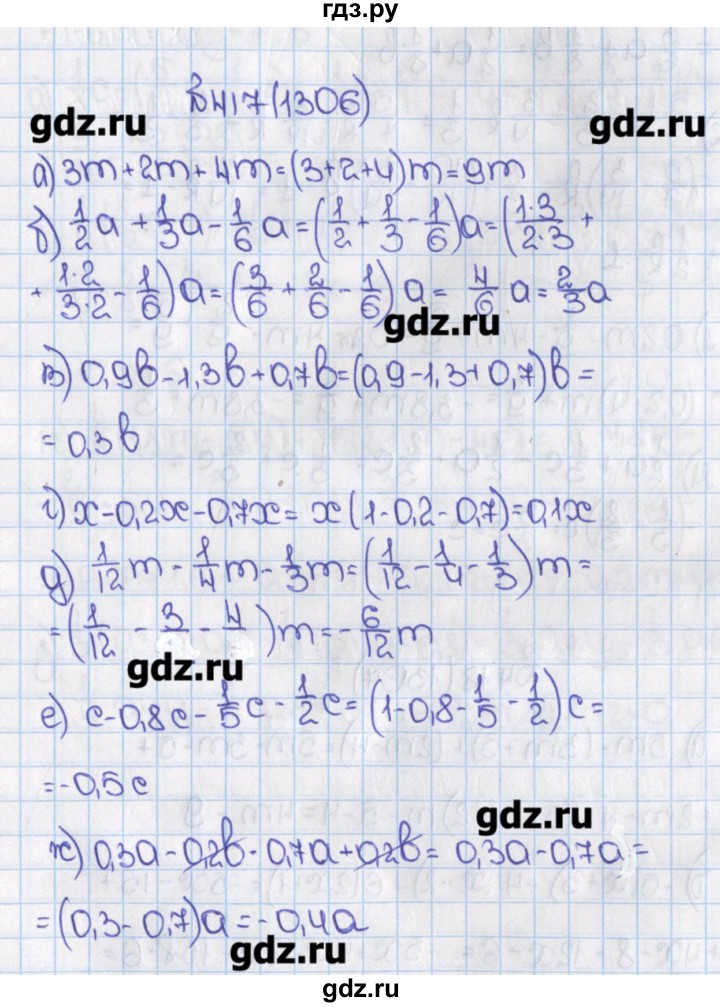 гдз.ру
№417(1306)
gdz.ru gdz.ru
а) 3m+2m+4m=(3+2+4)m=9m
б) 1/2 a + 1/3 a - 1/6 a = (1/2 + 1/3 - 1/6)a = (1·3/2·3 +
+ 1·2/3·2 - 1/6)a = (3/6 + 2/6 - 1/6)a = 4/6 a = 2/3 a
gdz.ru
в) 0,9b-1,3b+0,7b=(0,9-1,3+0,7)b=
=0,3b
г) x-0,2x-0,7x=x(1-0,2-0,7)=0,1x
д) 1/12 m - 1/4 m - 1/3 m = (1/12 - 1/4 - 1/3)m =
=(1/12 - 3/ - 4/)m = -6/12 m
gdz.ru
е) c-0,8c- 1/5 c - 1/2 c = (1-0,8- 1/5 - 1/2)c =
=-0,5c
gdz.ru
ж) 0,3a-0,2b-0,7a+0,2b=0,3a-0,7a=
=(0,3-0,7)a=-0,4a
gdz.ru
гдз.ру